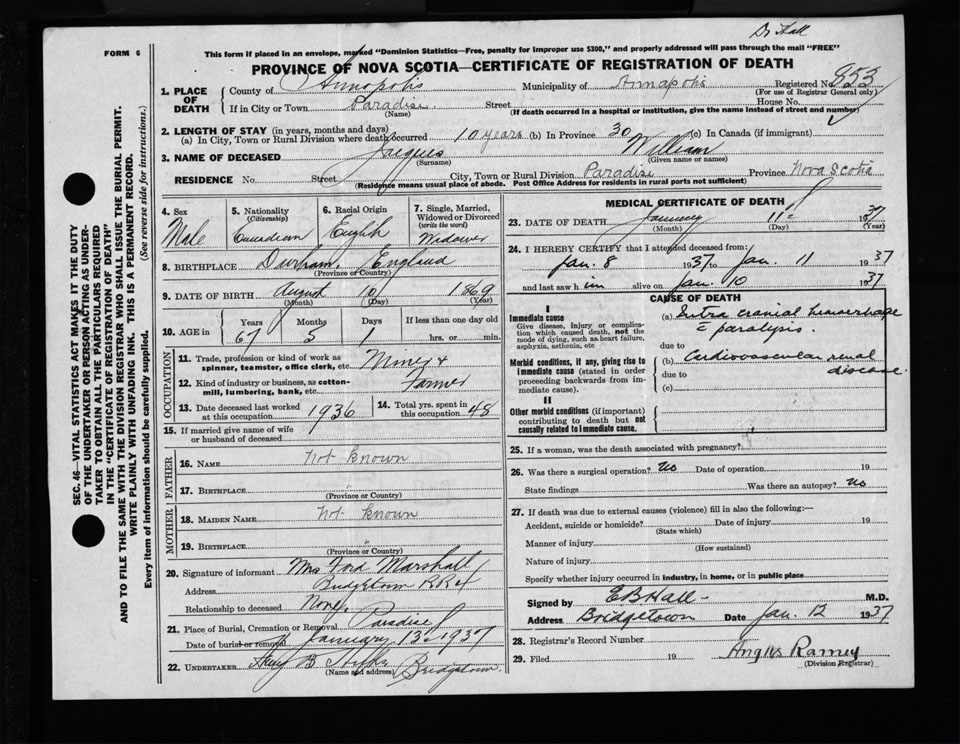 Dr Hall
FORM 6
This form if placed in an envelope, marked "Dominion Statistics—Free, penalty for improper use $300," and properly addressed will pass through the mail "FREE"
PROVINCE OF NOVA SCOTIA—CERTIFICATE OF REGISTRATION OF DEATH
1. PLACE OF DEATH County of Annapolis Municipality of Annapolis Registered No. 853
(For use of Registrar General only)
If in City or Town Paradise Street House No.
(Name) (If death occurred in a hospital or institution, give the name instead of street and number)
2. LENGTH OF STAY (in years, months and days)
(a) In City, Town or Rural Division where death occurred 10 years (b) In Province 30 (c) In Canada (if immigrant)
3. NAME OF DECEASED Jacques William
(Surname) (Given name or names)
RESIDENCE No. Street City, Town or Rural Division Paradise Province Nova Scotia
(Residence means usual place of abode. Post Office Address for residents in rural parts not sufficient)
4. Sex Male
5. Nationality (Citizenship) Canadian
6. Racial Origin English
7. Single, Married, Widowed or Divorced (write the word) Widower
8. BIRTHPLACE Durham, England
(Province or Country)
9. DATE OF BIRTH August 10 1869
(Month) (Day) (Year)
10. AGE in Years Months Days If less than one day old
67 5 1 hrs. or min.
OCCUPATION
11. Trade, profession or kind of work as spinner, teamster, office clerk, etc. Miner &
12. Kind of industry or business, as cotton-mill, lumbering, bank, etc. Farmer
13. Date deceased last worked at this occupation 1936
14. Total yrs. spent in this occupation 48
15. If married give name of wife or husband of deceased
FATHER
16. NAME Not known
17. BIRTHPLACE
(Province or Country)
MOTHER
18. MAIDEN NAME Not known
19. BIRTHPLACE
(Province or Country)
20. Signature of informant Mrs Ford Marshall
Address Bridgetown RR
Relationship to deceased None
21. Place of Burial, Cremation or Removal Paradise
Date of burial or removal January 13 1937
22. UNDERTAKER B Bridgetown
(Name and address)
MEDICAL CERTIFICATE OF DEATH
23. DATE OF DEATH January 11 1937
(Month) (Day) (Year)
24. I HEREBY CERTIFY that I attended deceased from:
Jan. 8 1937 to Jan. 11 1937
and last saw h im alive on Jan. 10 1937
CAUSE OF DEATH
I
Immediate cause
Give disease, injury or complication which caused death, not the mode of dying, such as heart failure, asphyxia, asthenia, etc
(a) Intra cranial hemorrhage
paralysis
due to
Morbid conditions, if any, giving rise to immediate cause (stated in order proceeding backwards from immediate cause).
(b) Cardiovascular renal
disease
due to
(c)
II
Other morbid conditions (if important) contributing to death but not causally related to immediate cause.
25. If a woman, was the death associated with pregnancy?
26. Was there a surgical operation? No Date of operation 19
State findings Was there an autopsy? No
27. If death was due to external causes (violence) fill in also the following:—
Accident, suicide or homicide? Date of injury 19
(State which)
Manner of injury
(How sustained)
Nature of injury
Specify whether injury occurred in industry, in home, or in public place
Signed by E B Hall M.D.
Address Bridgetown Date Jan. 12 1937
28. Registrar's Record Number
29. Filed 19 Angus Ramey
(Division Registrar)
SEC. 46—VITAL STATISTICS ACT MAKES IT THE DUTY
OF THE UNDERTAKER OR PERSON ACTING AS UNDER-
TAKER TO OBTAIN ALL THE PARTICULARS REQUIRED
IN THE "CERTIFICATE OF REGISTRATION OF DEATH"
AND TO FILE THE SAME WITH THE DIVISION REGISTRAR WHO SHALL ISSUE THE BURIAL PERMIT.
WRITE PLAINLY WITH UNFADING INK. THIS IS A PERMANENT RECORD.
Every item of information should be carefully supplied. (See reverse side for instructions.)